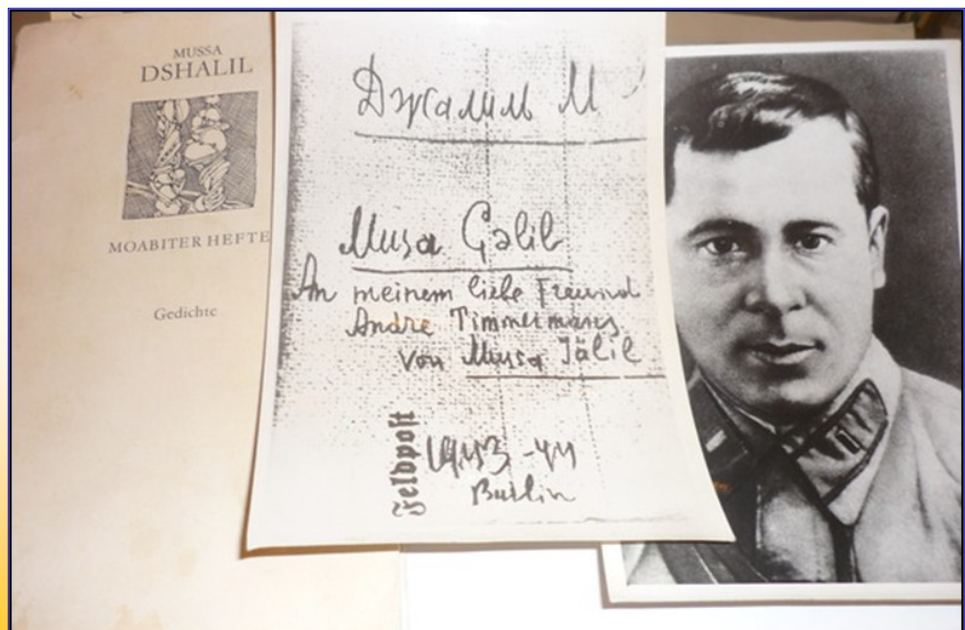 MUSSA
DSHALIL
MOABITER HEFTE
Gedichte
Джалиль М
Musa Gəlil
An meinem liebe Freund
Andre Timmermans
von Mussa Jälil
Feldpost
1943-44
Berlin